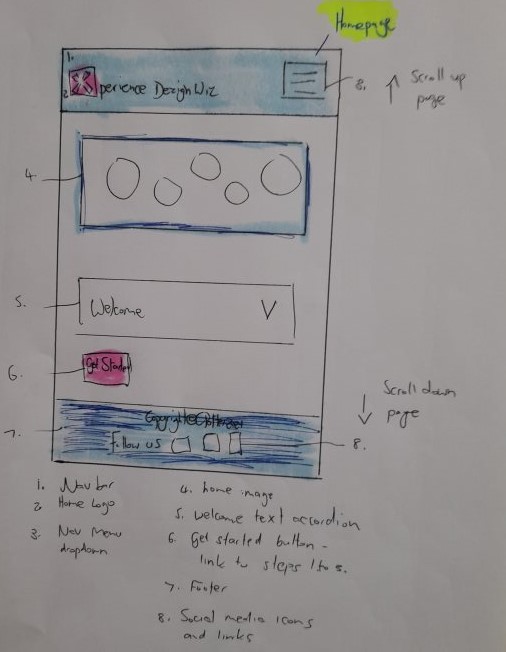 Homepage
1.
2
perience Design Wiz
8.
Scroll up
page
4
5.
Welcome
6.
Get Started
Scroll down
page
7.
Follow us
8.
1. Nav bar
2 Home Logo
3. Nav Menu
dropdown
4. home image
5. welcome text accordion
6. Get started button -
link to steps 1 to 5.
7. Footer
8. Social media icons
and links